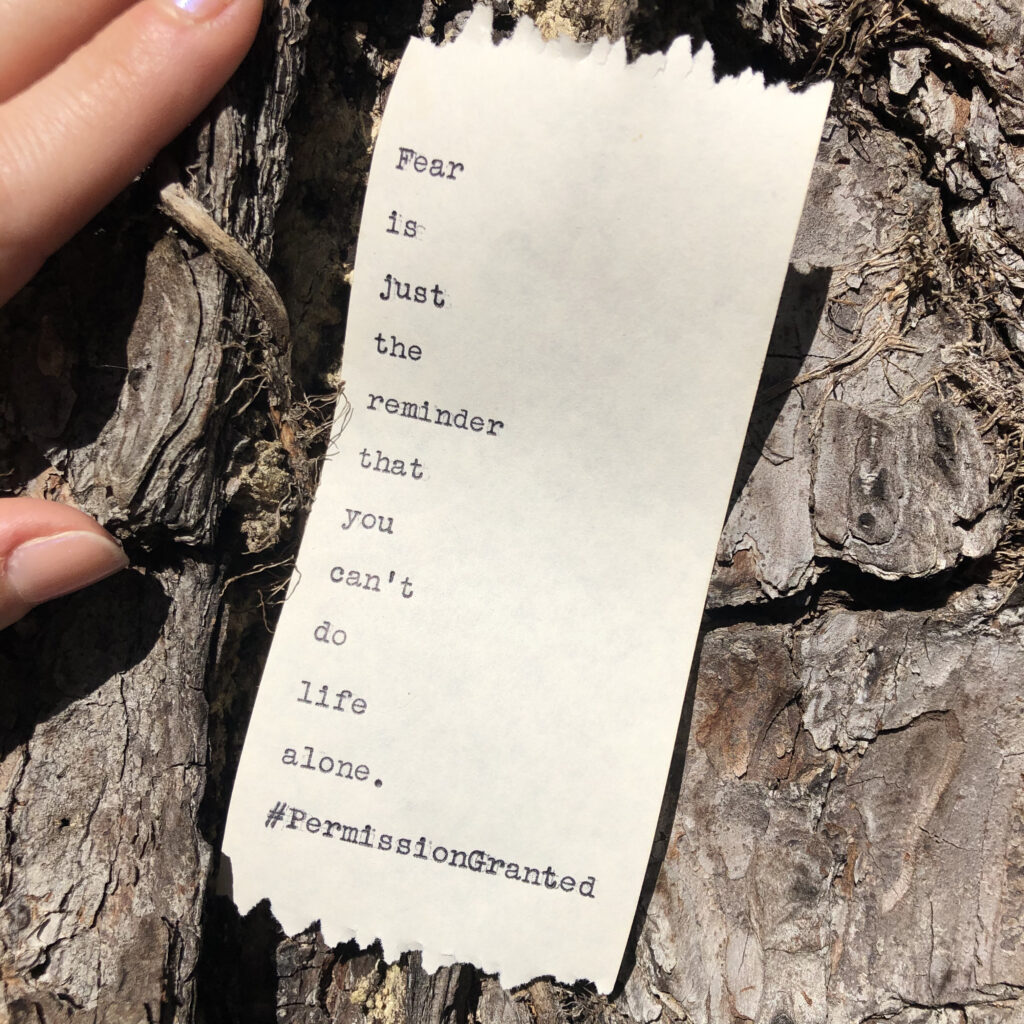 Fear
is
just
the
reminder
that
you
can't
do
life
alone.
#PermissionGranted